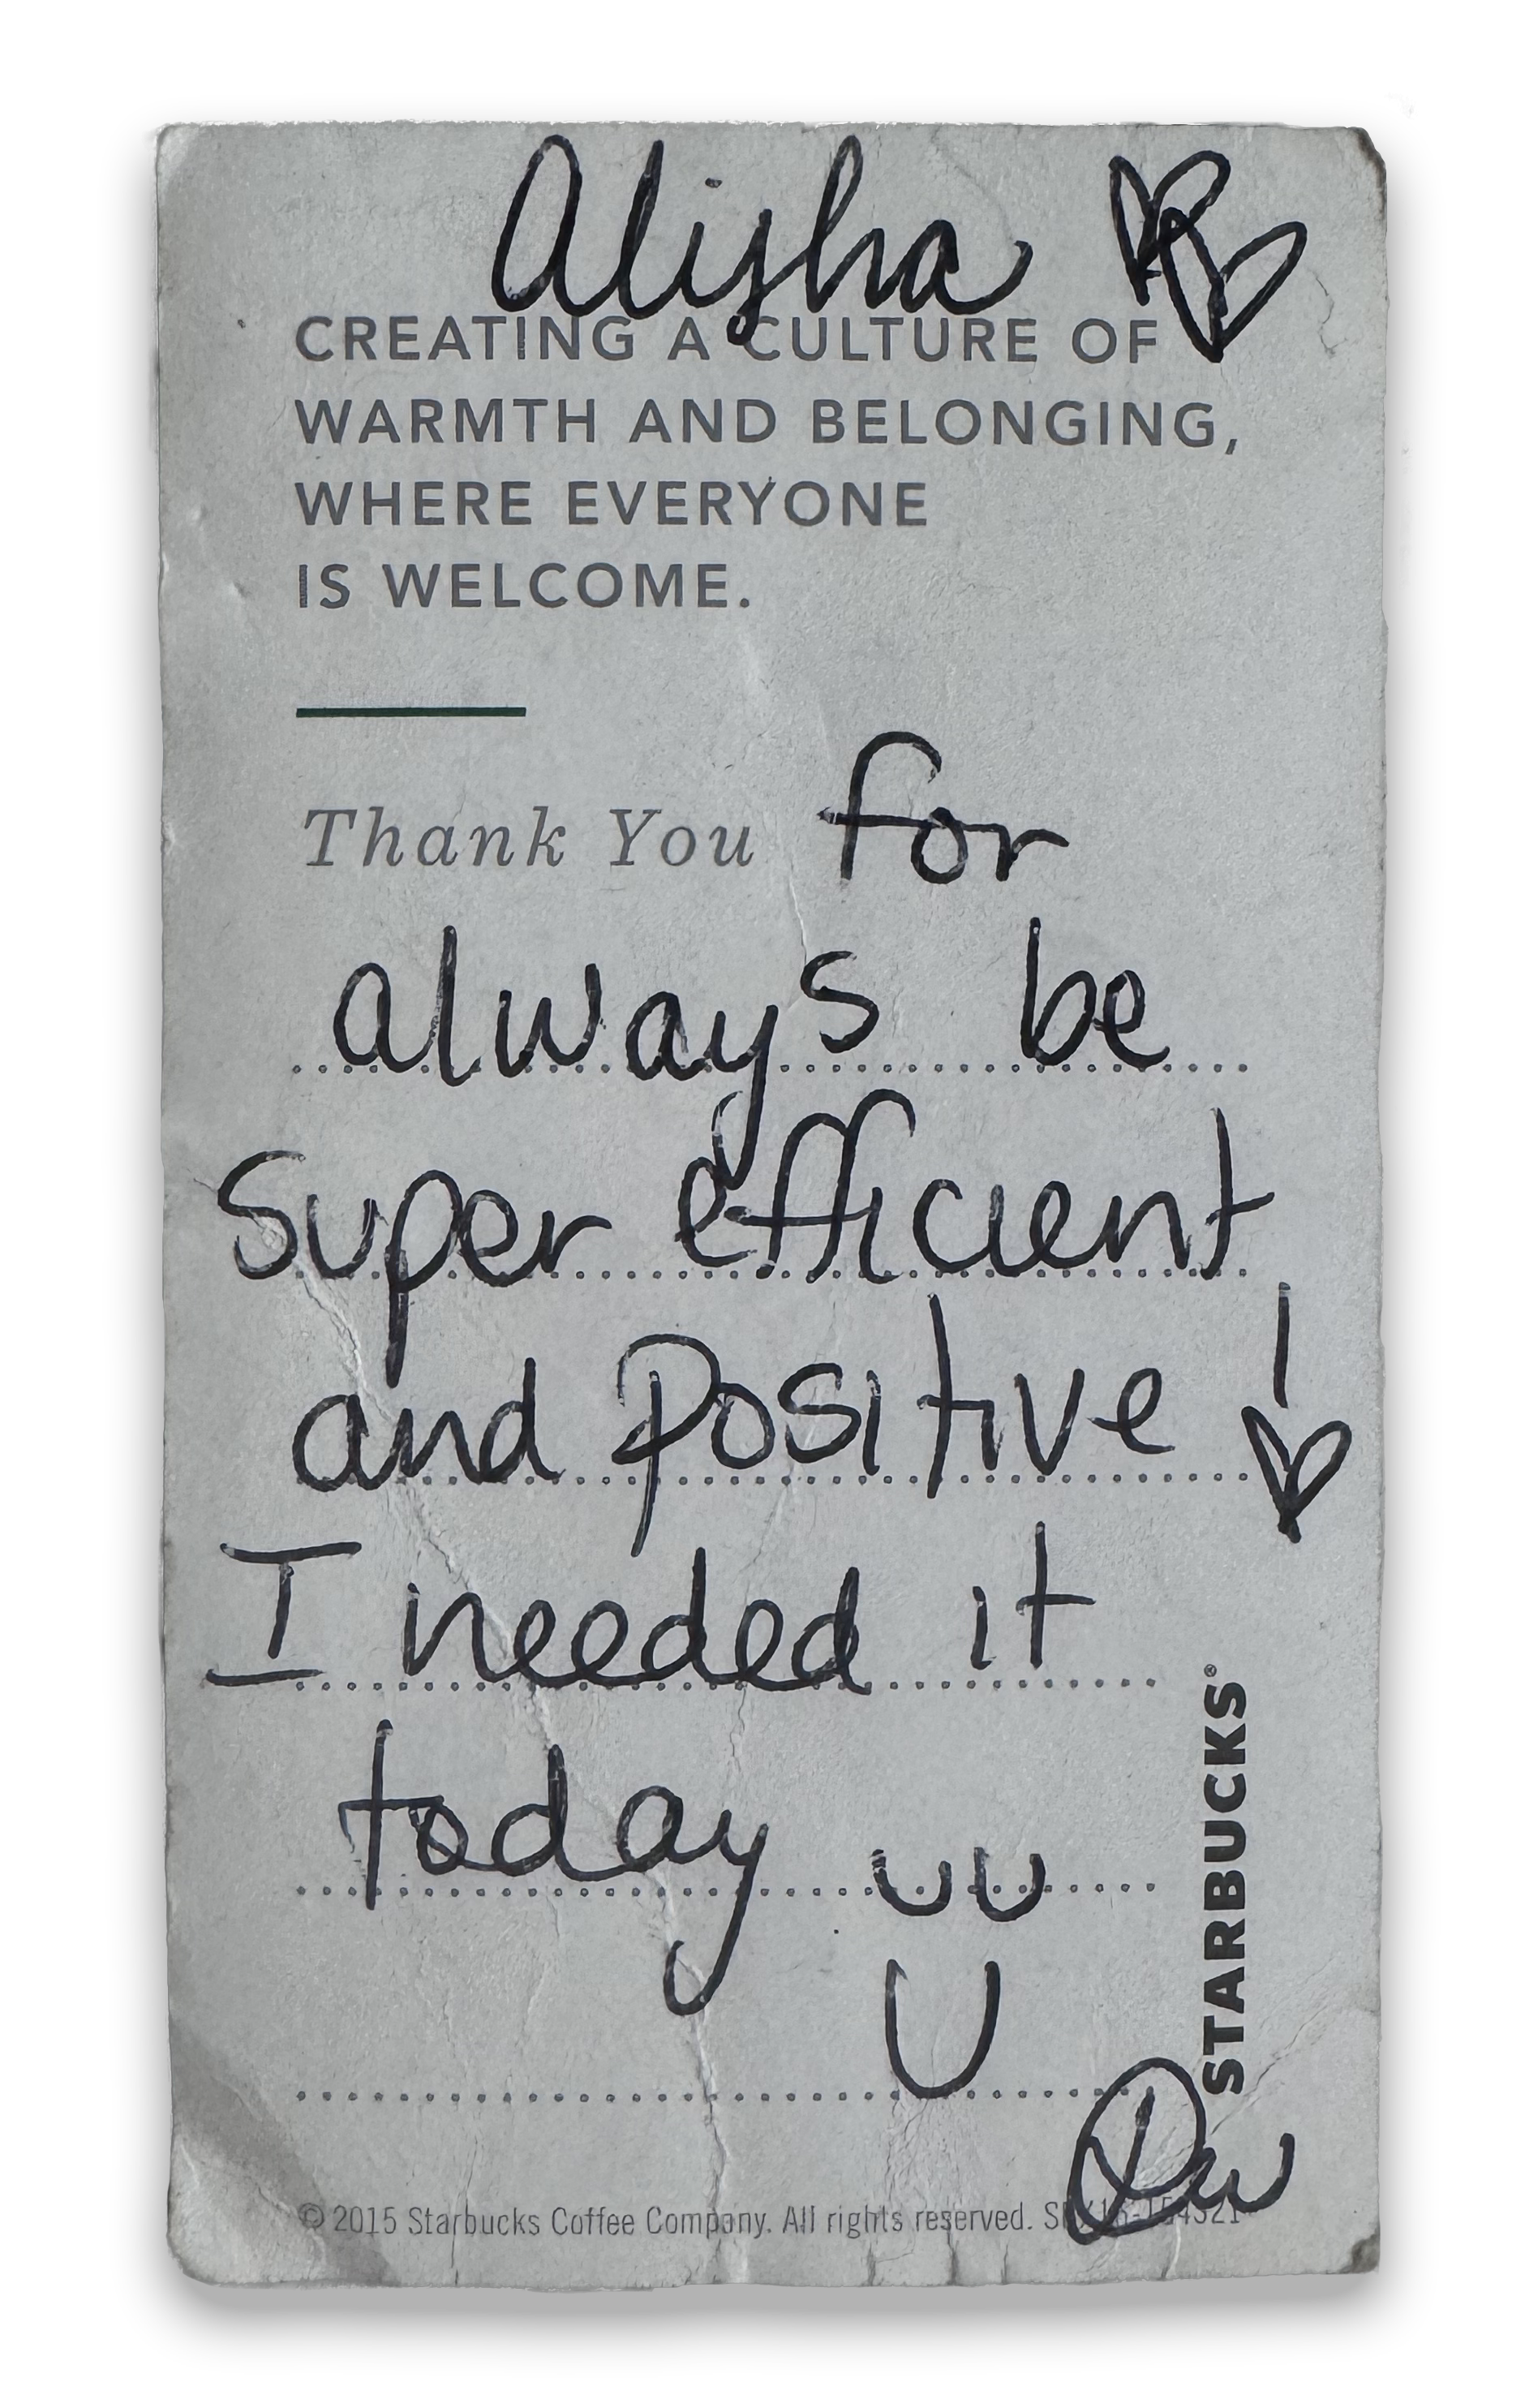 Alisha
CREATING A CULTURE OF
WARMTH AND BELONGING,
WHERE EVERYONE
IS WELCOME.
Thank You for
always be
Super efficient
and Positive!
I needed it
today
STARBUCKS®
© 2015 Starbucks Coffee Company. All rights reserved.